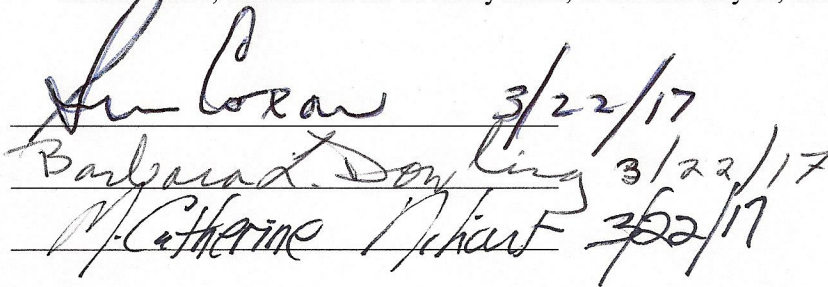 Coxon 3/22/17
Barbara L. Dowling 3/22/17
M. Catherine 3/22/17